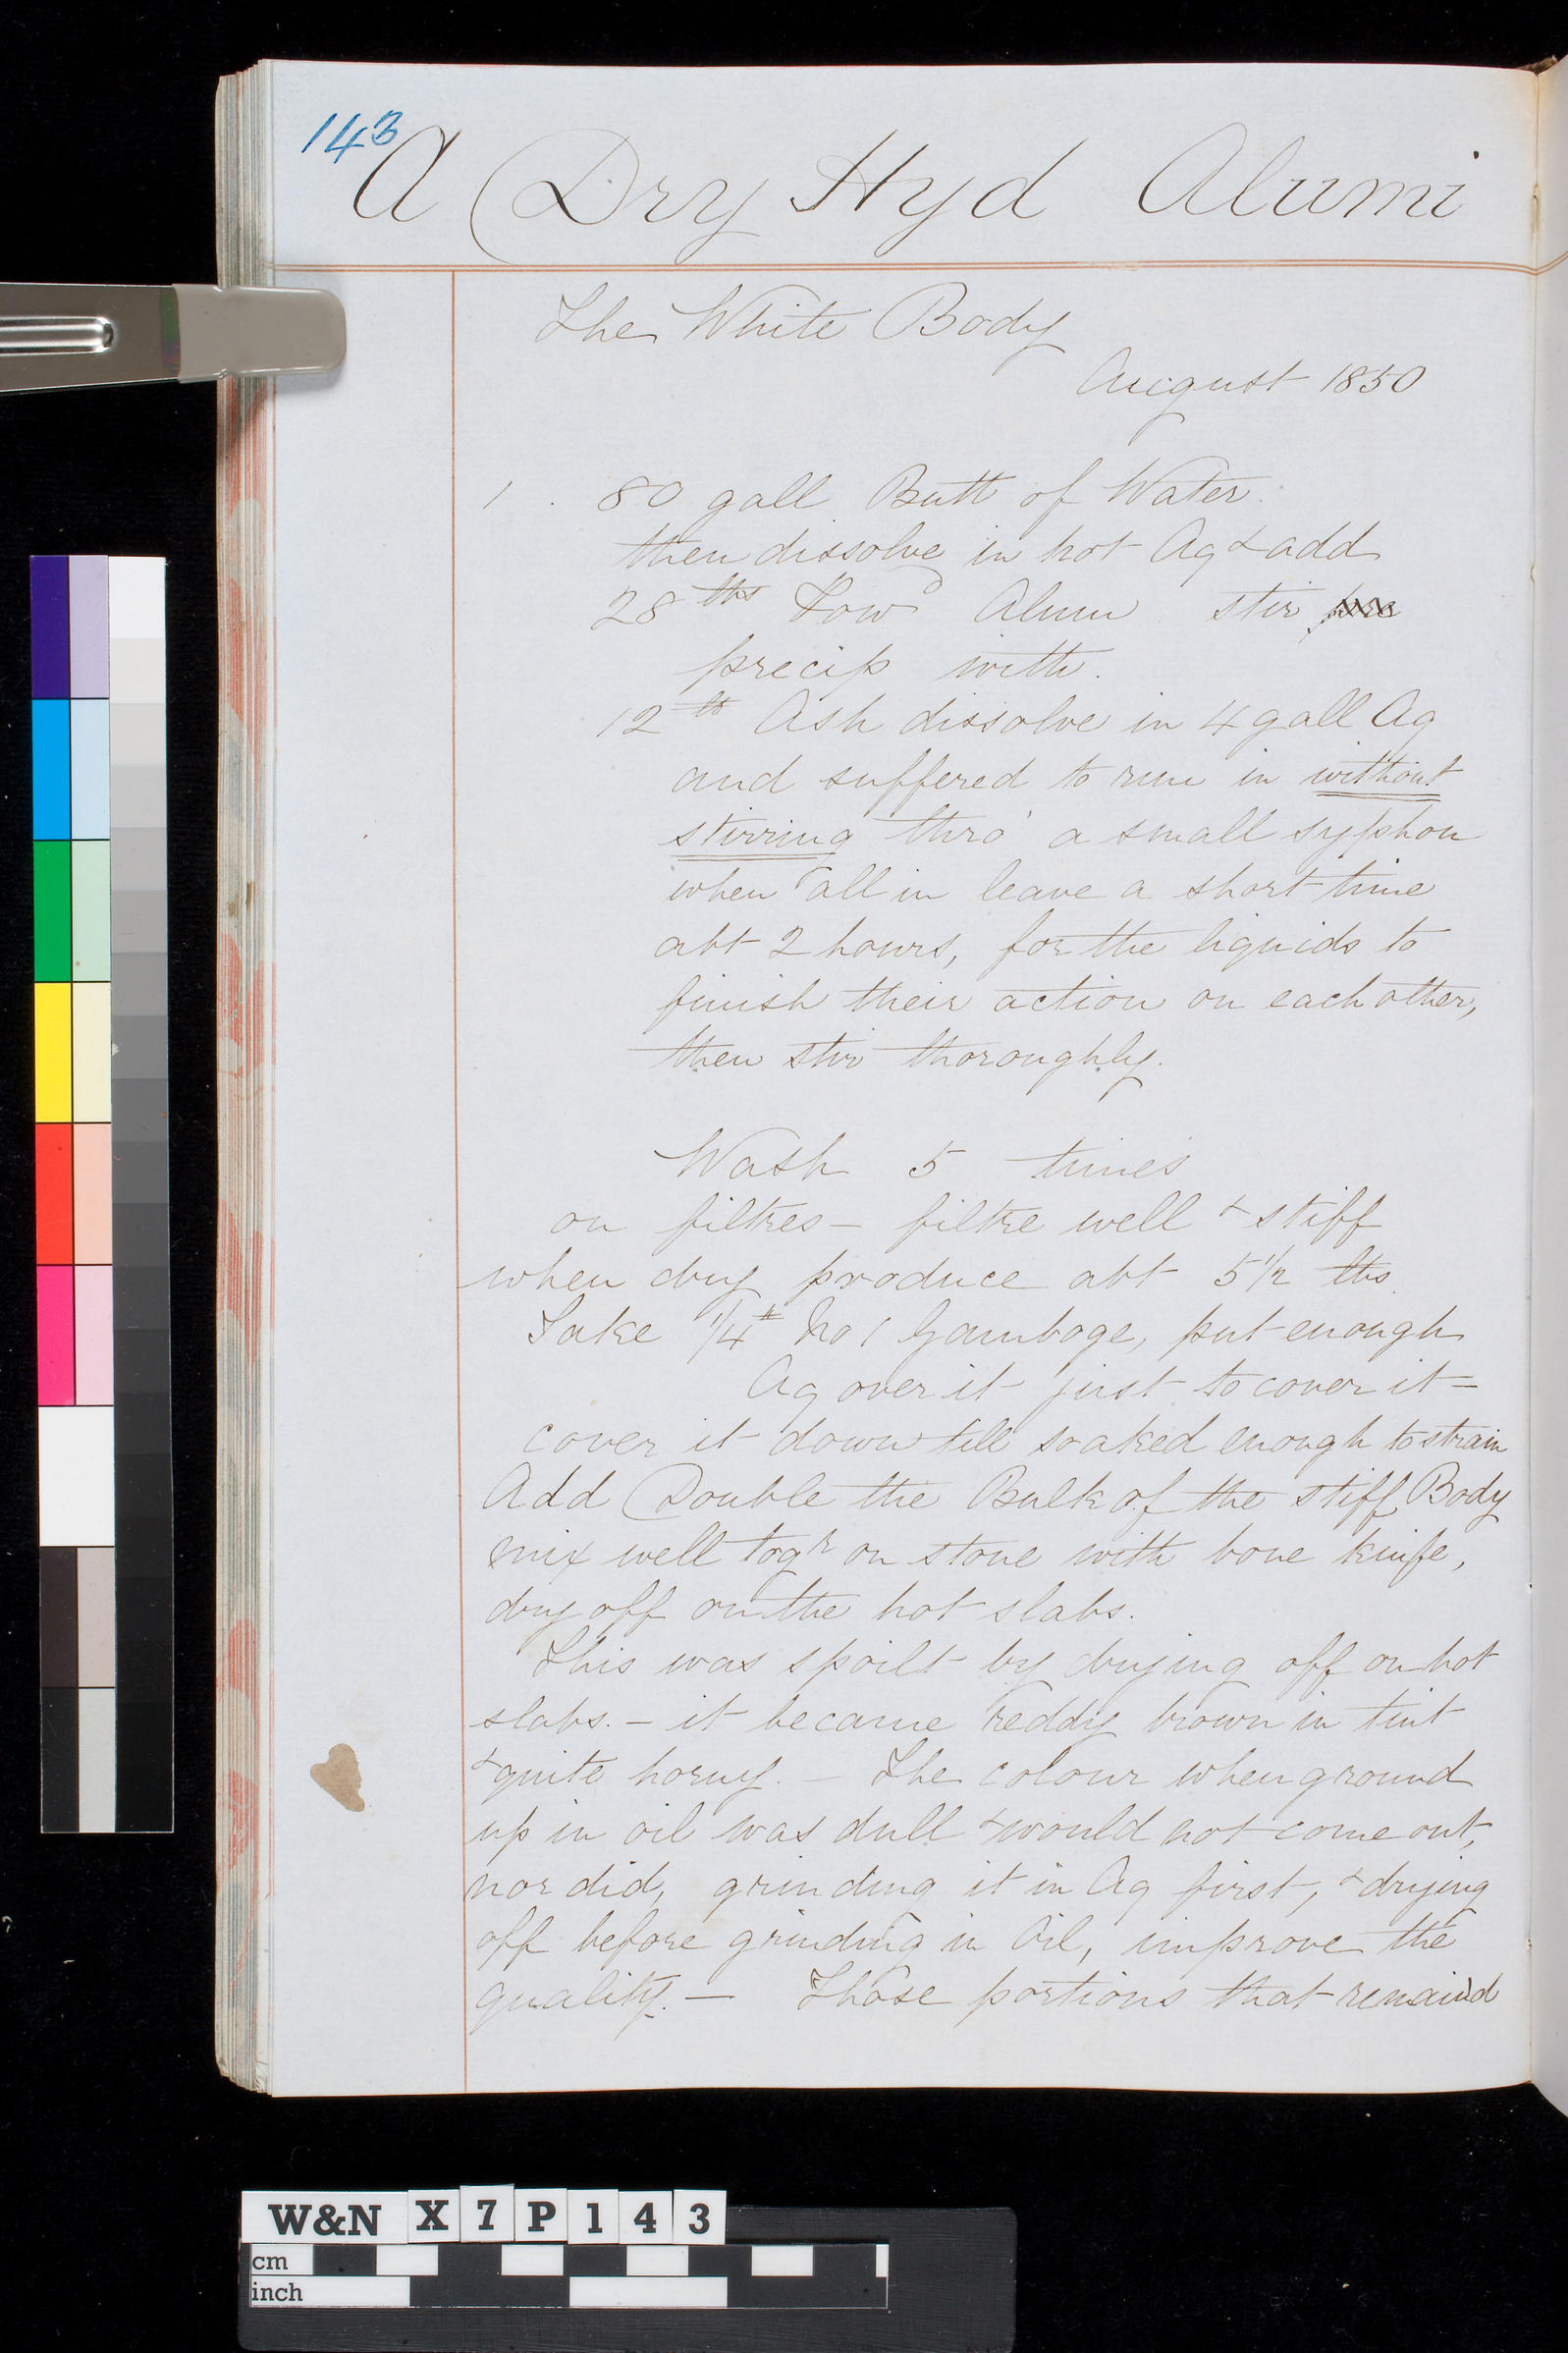 143
A Dry Hyd Alumi
The White Body
August 1850
1. 80 gall Butt of Water.
then dissolve in hot Aq & add
28 lbs Powd Alum stir pre
precip with.
12 lb Ash dissolve in 4 gall Aq
and suffered to run in without
stirring thro' a small syphon
when all in leave a short time
abt 2 hours, for the liquids to
finish their action on each other,
then stir thoroughly.
Wash 5 times
on filtres – filtre well & stiff
when dry produce abt 5 1/2 lbs.
Take 1/4 lb No 1 Gamboge, put enough
Aq over it just to cover it =
cover it down till soaked enough to strain
Add Double the Bulk of the stiff Body
mix well togr on stone with bone knife,
dry off on the hot slabs.
This was spoilt by drying off on hot
slabs. – it became reddy brown in tint
& quite horny. – The colour when ground
up in oil was dull & would not come out,
nor did, grinding it in Aq first, & drying
off before grinding in Oil, improve the
quality. – Those portions that remain'd
W&N X7P143
cm
inch